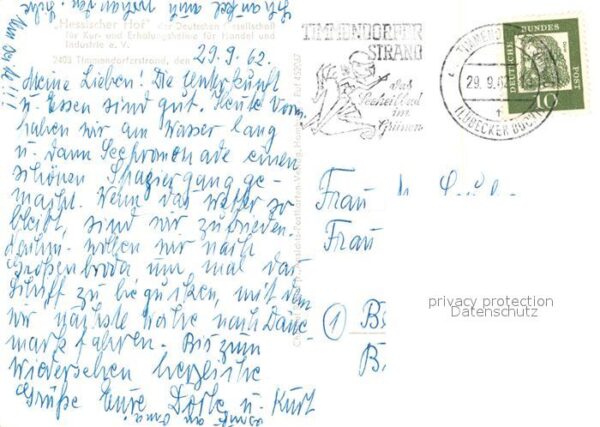 „Hessischer Hof" der Deutschen Gesellschaft
für Kur- und Erholungsheime für Handel und
Industrie e. V.
2408 Timmendorferstrand,
29.9.62.
Meine Lieben! Die Unterkunft
u. Essen sind gut. Heute Vorm.
haben wir am Wasser lang
u. dann Seepromenade einen
schönen Spaziergang ge-
macht. Wenn das Wetter so
bleibt, sind wir zufrieden.
wollen wir nach
Großenbroda um mal das
Schiff zu begucken, mit dem
wir nächste Woche nach Däne-
mark fahren. Bis zum
Wiedersehen herzliche
Grüße Eure Dorle u. Kurt
TIMMENDORFER
STRAND
das
Seeheilbad
im
Grünen
29. 9. 62
(LÜBECKER BUCHT)
DEUTSCHE BUNDESPOST
10
Frau
Frau
① B
B.
privacy protection
Datenschutz